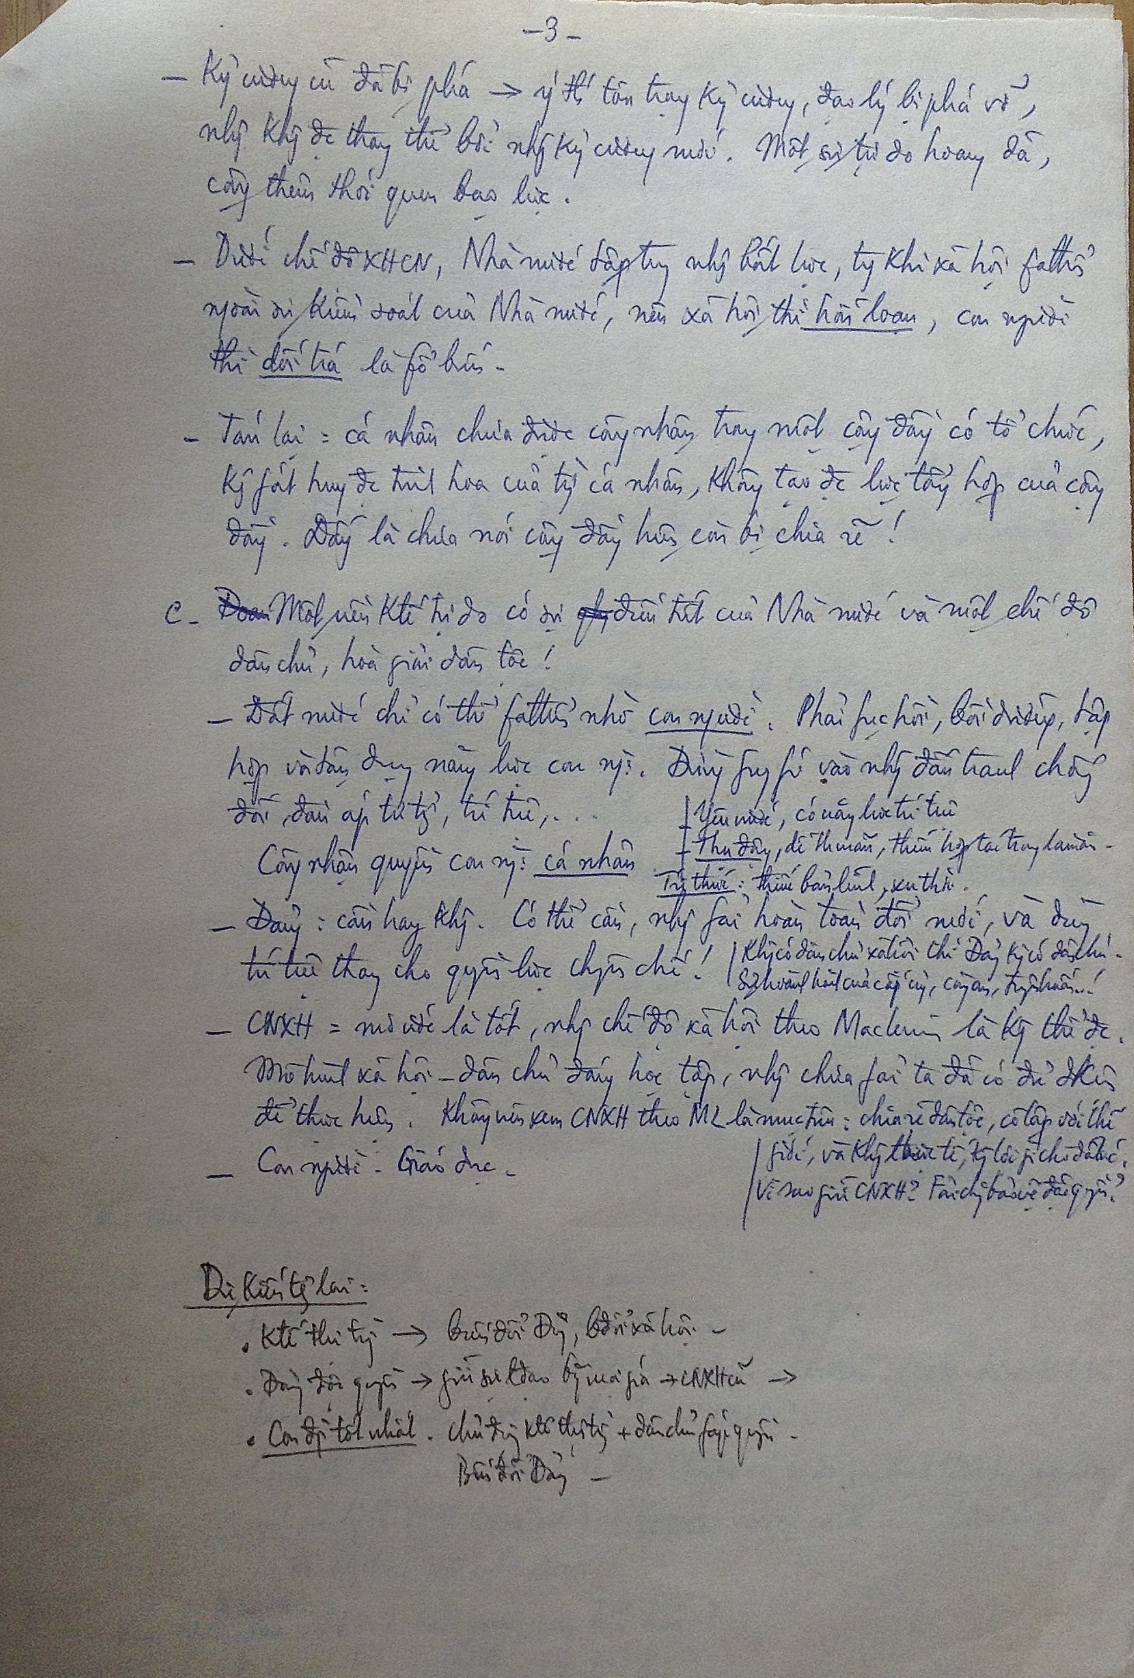 -3-
- Kỷ cương cũ đã bị phá → ý thức tôn trọng kỷ cương, đạo lý bị phá vỡ,
nhg khg đc thay thế bởi nhg kỷ cương mới. Một sự tự do hoang dã,
cộng thêm thói quen bạo lực.
- Dưới chế độ XHCN, Nhà nước tập trg nhg bất lực, tg khi xã hội fát triển
ngoài sự kiểm soát của Nhà nước, nên xã hội thì hỗn loạn, con người
thì dối trá là fổ biến.
- Tóm lại = cá nhân chưa được công nhận trong một cộng đồng có tổ chức,
kg fát huy đc tinh hoa của từng cá nhân, không tạo đc lực tổng hợp của cộng
đồng. Đấy là chưa nói cộng đồng hiện còn bị chia rẽ!
C- Một nền Ktế tự do có sự điều tiết của Nhà nước và một chế độ
dân chủ, hoà giải dân tộc!
- Đất nước chỉ có thể fát triển nhờ con người. Phải fục hồi, bồi dưỡng, tập
hợp và tận dụng năng lực con ng: Đừng fung fí vào nhg đấu tranh chống
đối, đàn áp tư tg, trí tuệ, ...
| - Yêu nước, có năng lực trí tuệ
Công nhận quyền con ng: cá nhân
| - Thụ động, dễ thoả mãn, thiếu hợp tác trong làm ăn -
Trí thức: thiếu bản lĩnh, xu thời.
- Đảng: cần hay khg. Có thể cần, nhg fải hoàn toàn đổi mới, và dùng
trí tuệ thay cho quyền lực chuyên chế!
| Khg có dân chủ xã hội chỉ Đảng kg có dân chủ.
Sự hoành hành của cấp uỷ, công an, tuyên huấn...!
- CNXH = mơ ước là tốt, nhg chế độ xã hội theo Maclenin là kg thể đc.
Mô hình xã hội - dân chủ đáng học tập, nhg chưa fải ta đã có đủ đkiện
để thực hiện. Không nên xem CNXH theo ML là mục tiêu: chia rẽ dân tộc, cô lập với thế
giới, và khg thực tế, kg lợi gì cho đất nước.
Vì sao giữ CNXH? Fải chăng bảo vệ đặc quyền?
- Con người - Giáo dục -
Dự kiến tg lai =
• Ktế thị trg → biến đổi Đg, bđổi xã hội -
• Đảng độc quyền → giữ sự lđạo bằng mọi giá → CNXH cũ →
• Con đg tốt nhất. chủ động ktế thị trg + dân chủ fáp quyền -
Biến đổi Đảng -